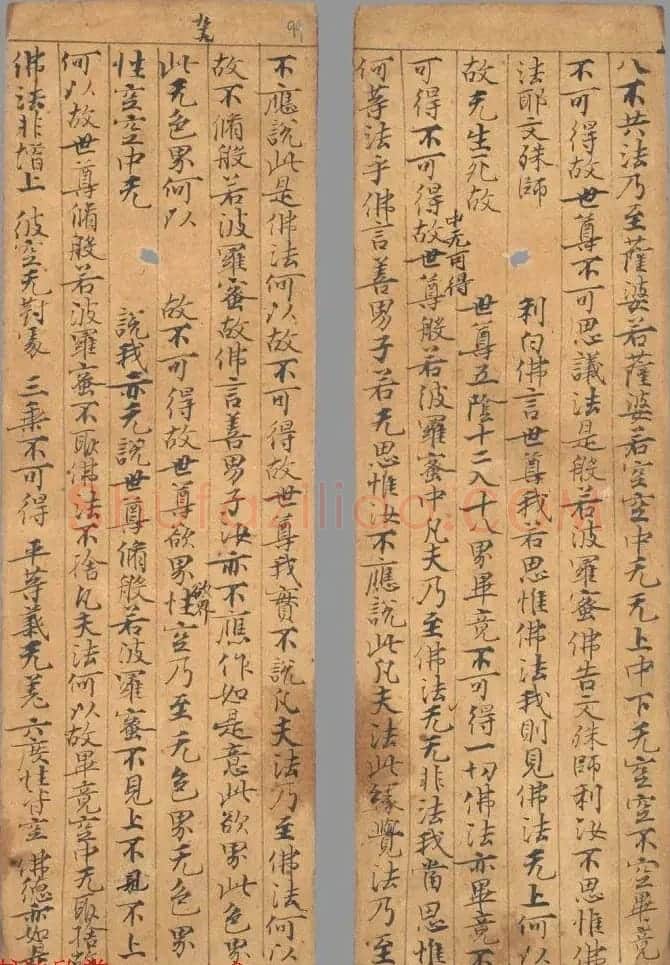 八不共法乃至薩婆若薩婆若空空中无无上中下无空空不空畢竟
不可得故世尊不可思議法是般若波羅蜜佛告文殊師利汝不思惟佛
法耶文殊師 利白佛言世尊我若思惟佛法我則見佛法无上何以
故无生死故 世尊五陰十二入十八界畢竟不可得一切佛法亦畢竟不
中无可得
可得不可得故世尊般若波羅蜜中凡夫乃至佛法无无非法我當思惟
何等法乎佛言善男子若无思惟汝不應說此凡夫法此緣覺法乃至
99
不應說此是佛法何以故不可得故世尊我實不說凡夫法乃至佛法何以
故不脩般若波羅蜜故佛言善男子汝亦不應作如是意此欲界此色界
欲界
此无色界何以 故不可得故世尊欲界性空乃至无色界无色界
性空空中无 說我亦无說世尊脩般若波羅蜜不見上不見不上
何以故世尊脩般若波羅蜜不取佛法不捨凡夫法何以故畢竟空中无取捨故
佛法非增上 彼空无對 三乘不可得 平等義无 六度性皆空 佛德亦如是
shufaziliao.com